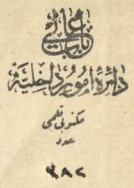 باب عالی
دائرهٔ امور داخلیه
مکتوبی قلمی
عدد